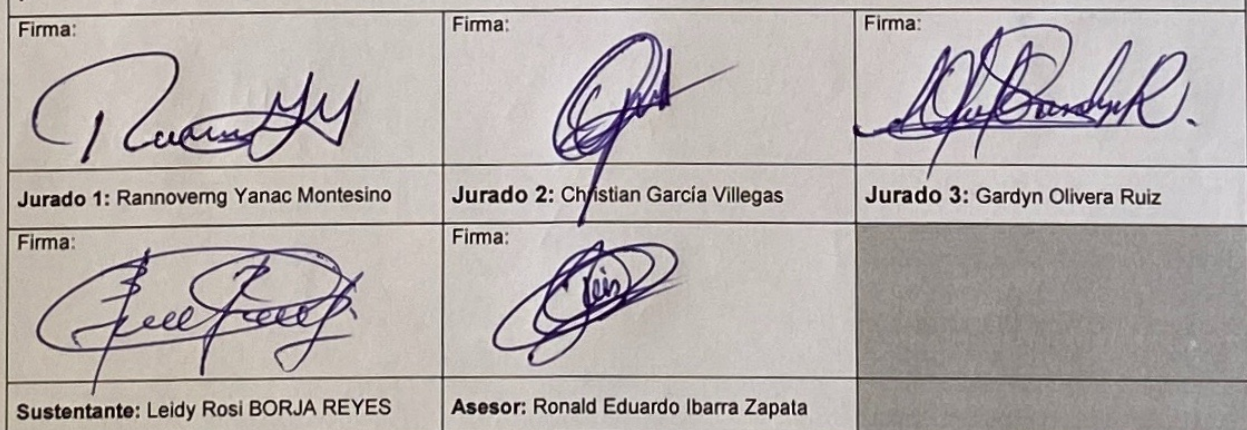 Firma:
Firma:
Firma:
Jurado 1: Rannoverng Yanac Montesino
Jurado 2: Christian García Villegas
Jurado 3: Gardyn Olivera Ruiz
Firma:
Firma:
Sustentante: Leidy Rosi BORJA REYES
Asesor: Ronald Eduardo Ibarra Zapata